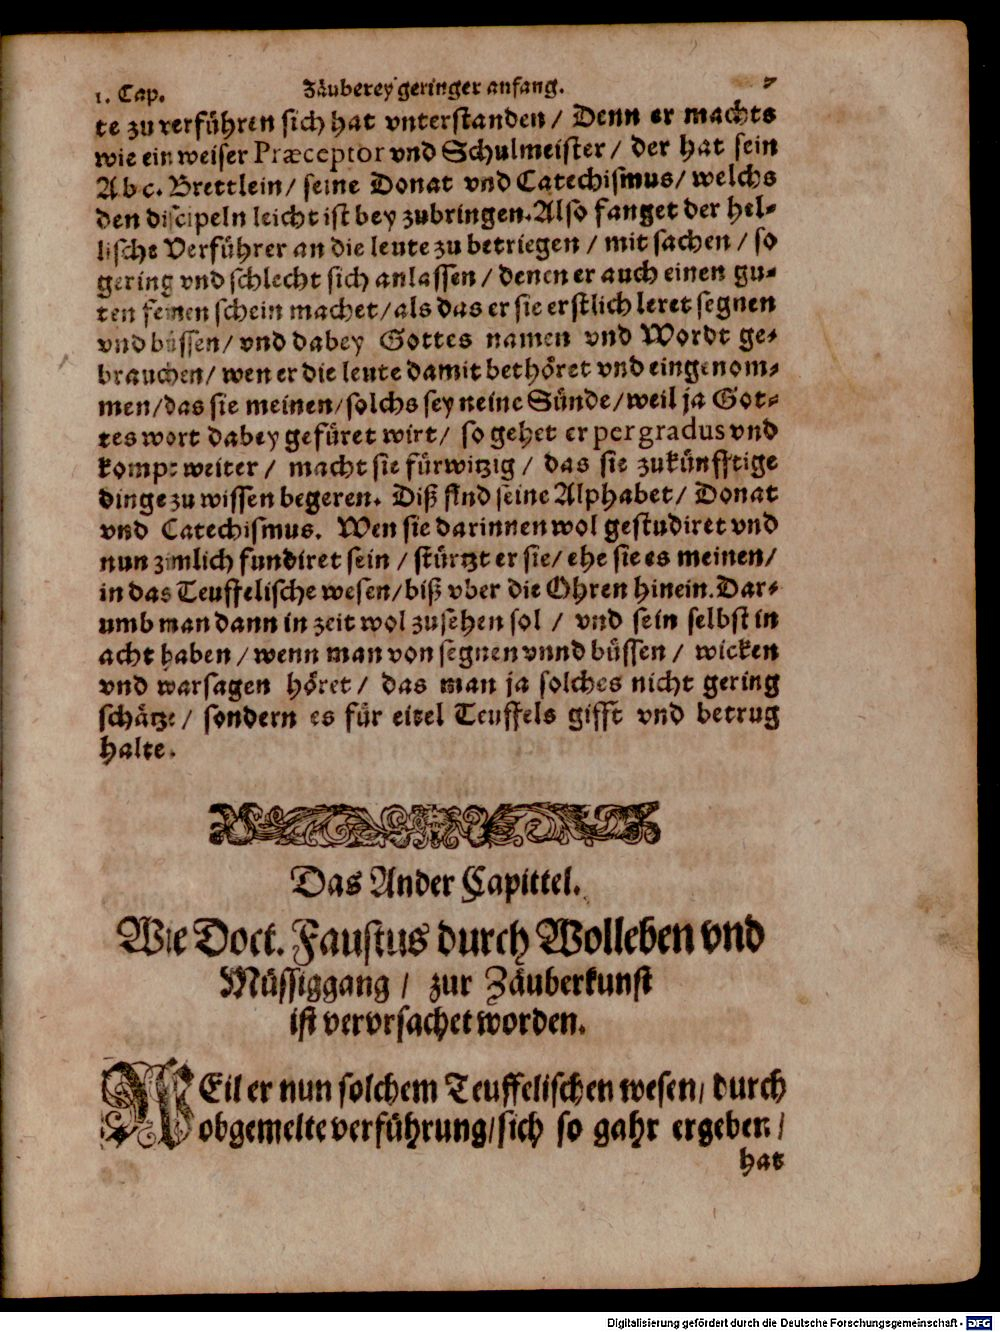 1. Cap. Zäuberey geringer anfang. 7
te zu verführen sich hat vnterstanden / Denn er machts
wie ein weiser Præceptor vnd Schulmeister / der hat sein
Abc. Brettlein / seine Donat vnd Catechismus / welchs
den discipeln leicht ist bey zubringen. Also fanget der hel-
lische Verführer an die leute zu betriegen / mit sachen / so
gering vnd schlecht sich anlassen / denen er auch einen gu-
ten feinen schein machet / als das er sie erstlich leret segnen
vnd büssen / vnd dabey Gottes namen vnd Wordt ge-
brauchen / wen er die leute damit bethöret vnd eingenom-
men / das sie meinen / solchs sey neine Sünde / weil ja Got-
tes wort dabey gefüret wirt / so gehet er per gradus vnd
kompt weiter / macht sie fürwitzig / das sie zukünfftige
dinge zu wissen begeren. Diß sind seine Alphabet / Donat
vnd Catechismus. Wen sie darinnen wol gestudiret vnd
nun zimlich fundiret sein / stürtzt er sie / ehe sie es meinen /
in das Teuffelische wesen / biß vber die Ohren hinein. Dar-
umb man dann in zeit wol zusehen sol / vnd sein selbst in
acht haben / wenn man von segnen vnnd büssen / wicken
vnd warsagen höret / das man ja solches nicht gering
schätze / sondern es für eitel Teuffels gifft vnd betrug
halte.
Das Ander Capittel.
Wie Doct. Faustus durch Wolleben vnd
Müssiggang / zur Zäuberkunst
ist vervrsachet worden.
WEil er nun solchem Teuffelischen wesen / durch
obgemelte verführung / sich so gahr ergeben /
hat
Digitalisierung gefördert durch die Deutsche Forschungsgemeinschaft - DFG